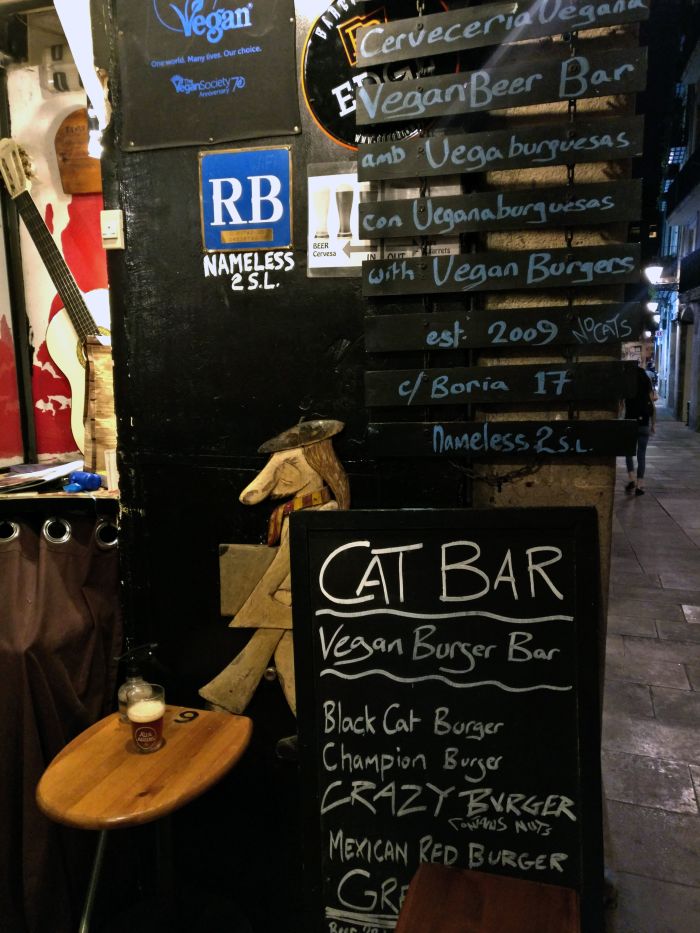 Vegan
One world. Many lives. Our choice.
The
VeganSociety
Anniversary 70
RB
NAMELESS
2 S.L.
BEER
Cervesa
IN OUT
Cervecería Vegana
Vegan Beer Bar
amb Vegaburguesas
con Veganaburguesas
with Vegan Burgers
est. 2009 NO CATS
c/ Boria 17
Nameless 2 S.L.
CAT BAR
Vegan Burger Bar
Black Cat Burger
Champion Burger
CRAZY BURGER
CONTAINS NUTS
MEXICAN RED BURGER
GRE
9